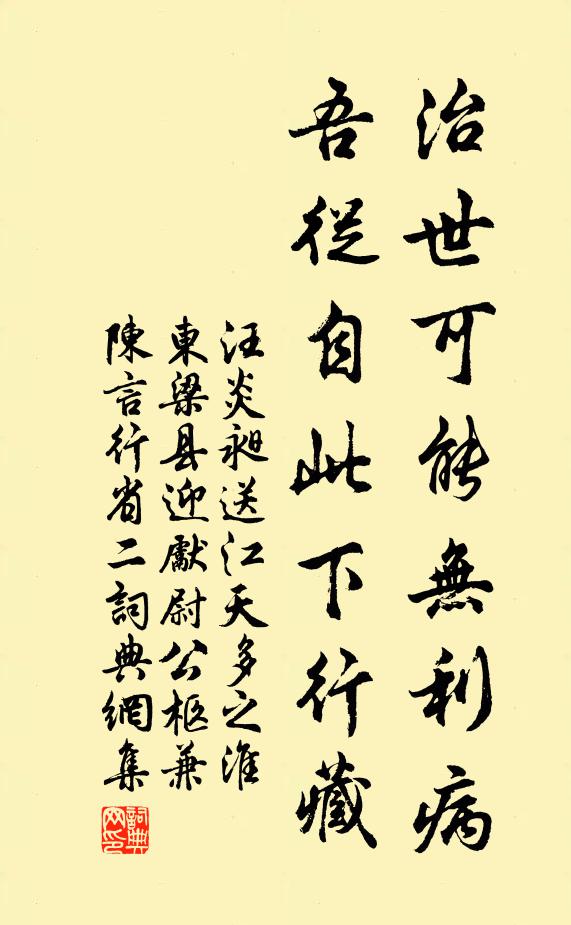 治世可能無利病
吾從自此下行藏
汪炎昶送江天多之淮
東梁县迎獻尉公柩兼
陳言行省二詞典網集
詞典網印